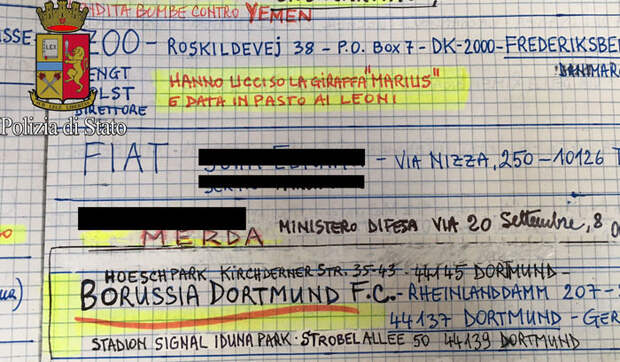 NDITA BUMBE CONTRO YEMEN
ZOO - ROSKILDEVEJ 38 - P.O. BOX 7 - DK-2000 - FREDERIKSBE
DANIMAR
ENGT
OLST
DIRETTORE
HANNO UCCISO LA GIRAFFA "MARIUS"
E DATA IN PASTO AI LEONI
Polizia di Stato
FIAT - VIA NIZZA, 250 - 10126 T
MINISTERO DIFESA VIA 20 Settembre, 8
MERDA
HOESCHPARK, KIRCHDERNER STR. 35-43 - 44145 DORTMUND -
BORUSSIA DORTMUND F.C. - RHEINLANDDAMM 207-
44137 DORTMUND - GER
STADION SIGNAL IDUNA PARK - STROBELALLEE 50 44139 DORTMUND